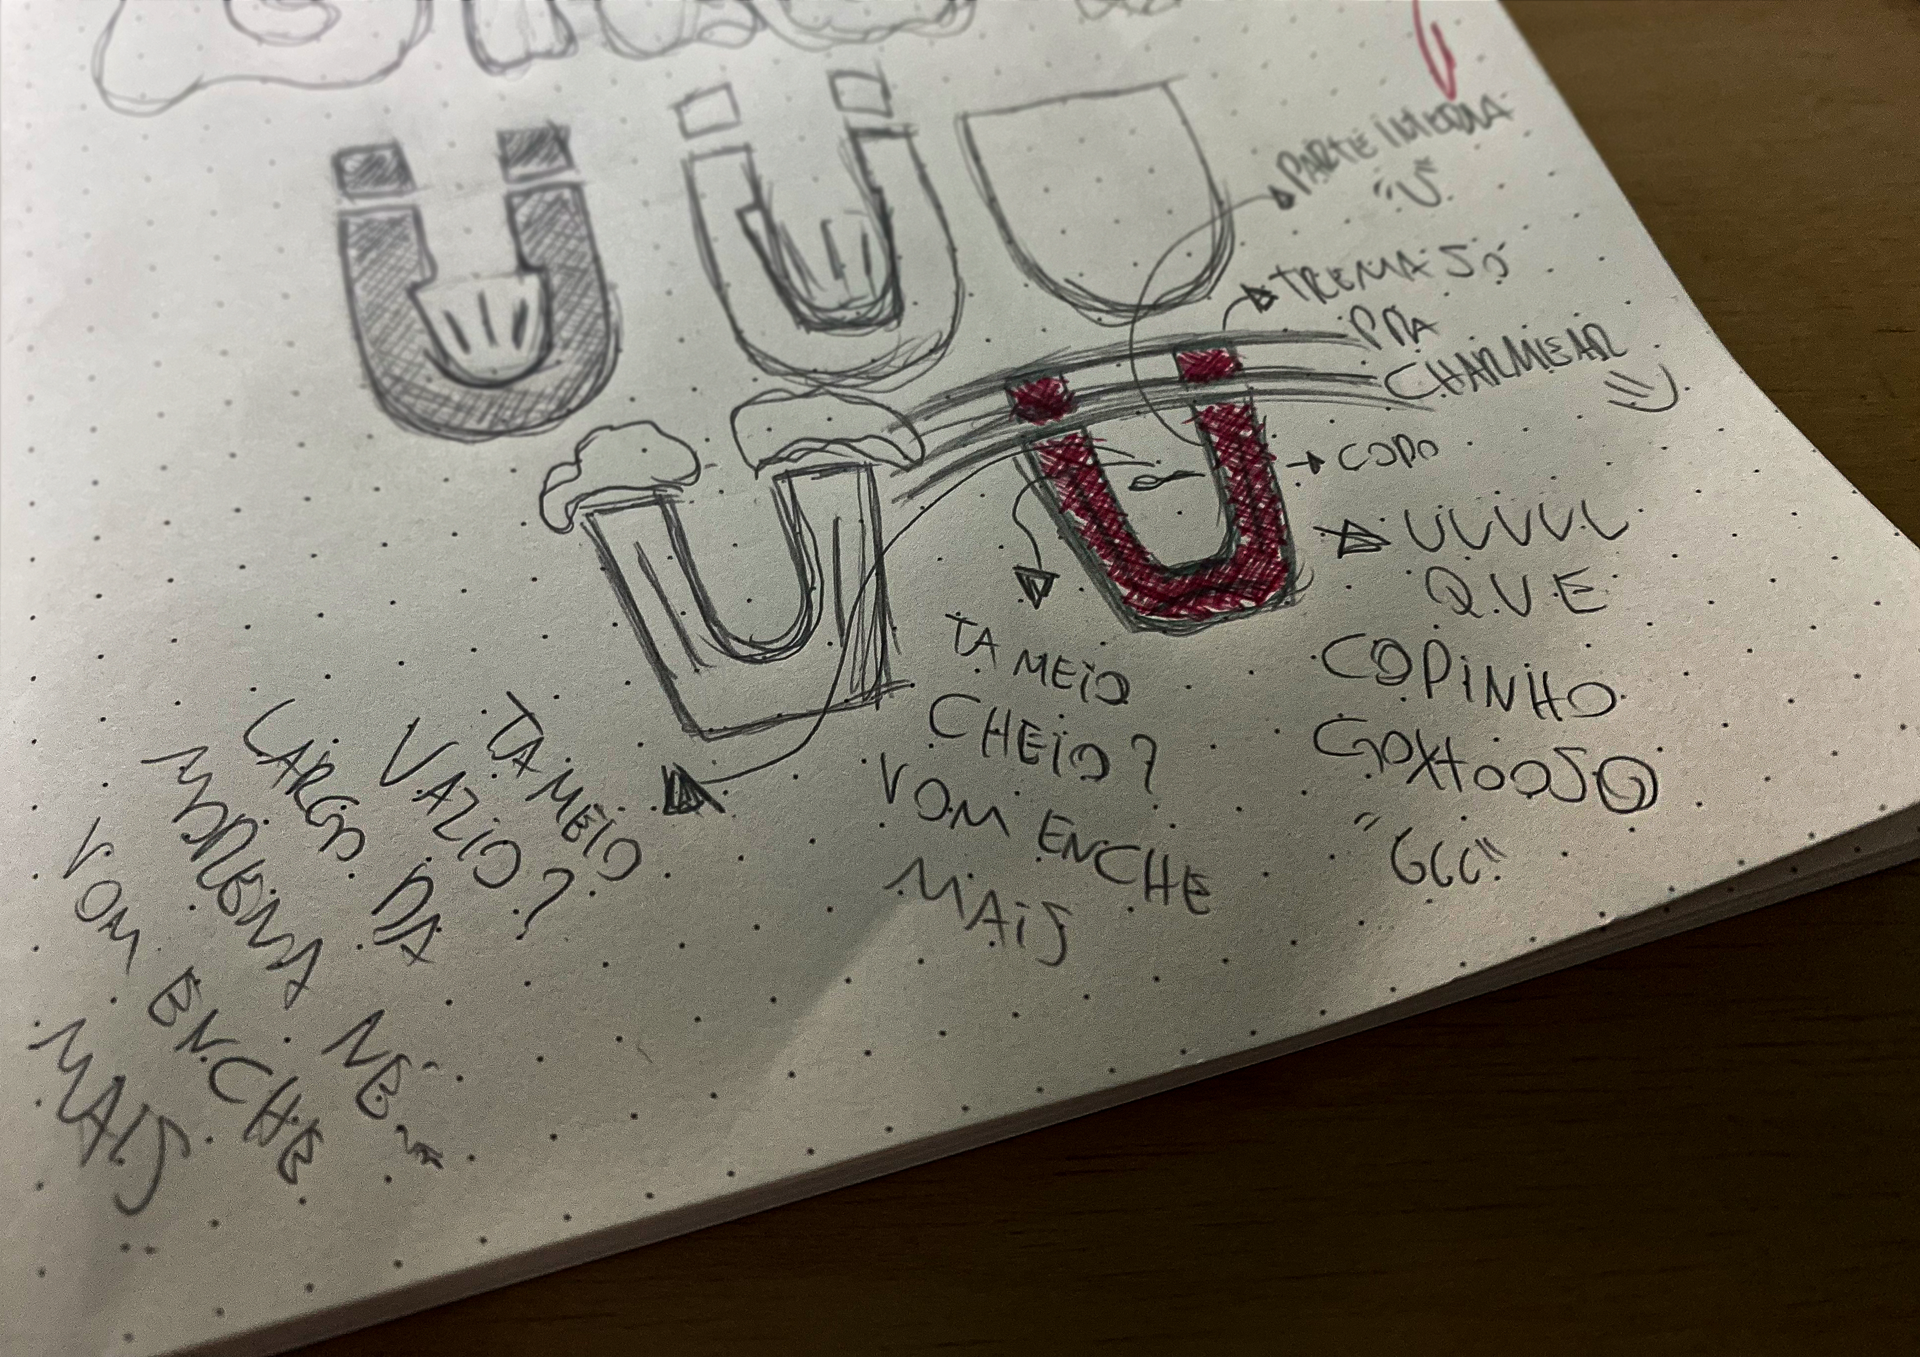 PARTE INTERNA
"U"
TREMA SÓ
PRA
CHARMEAR
COPO
UUUUU
QUE
COPINHO
GOXTOOSO
"GCC"
TA MEIO
CHEIO?
VOM ENCHE
MAIS
TA MEIO
VAZIO?
LARGO DA
MORENA NÉ
VOM ENCHE
MAIS